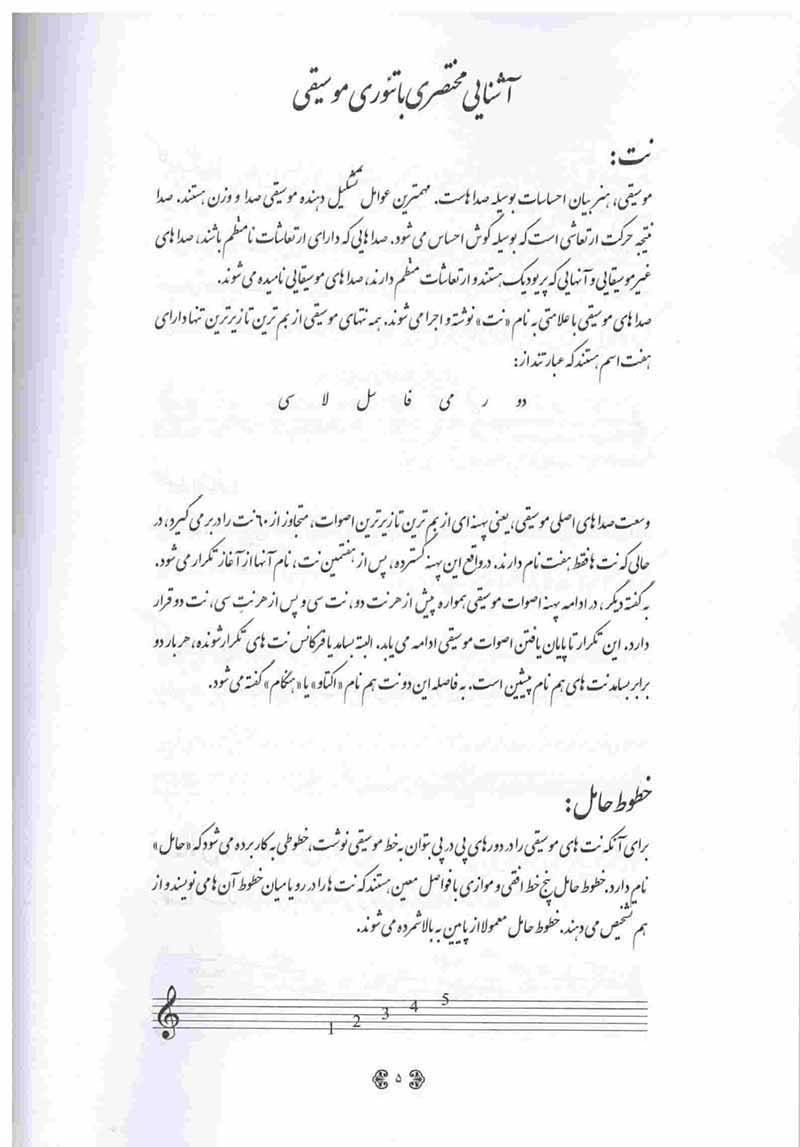 آشنایی مختصری با تئوری موسیقی
نت:
موسیقی، هنر بیان احساسات بوسیله صداهاست. مهمترین عوامل تشکیل دهنده موسیقی صدا و وزن هستند. صدا
نتیجه حرکت ارتعاشی است که بوسیله گوش احساس می شود. صداهایی که دارای ارتعاشات نامنظم باشند، صداهای
غیرموسیقایی و آنهایی که پریودیک هستند و ارتعاشات منظم دارند، صداهای موسیقایی نامیده می شوند.
صداهای موسیقی با علامتی به نام «نت» نوشته و اجرا می شوند. همه نتهای موسیقی از بم ترین تا زیرترین تنها دارای
هفت اسم هستند که عبارتند از:
دو ر می فا سل لا سی
وسعت صداهای اصلی موسیقی، یعنی پهنه ای از بم ترین تا زیرترین اصوات، متجاوز از ۶۰ نت را در بر می گیرد، در
حالی که نت ها فقط هفت نام دارند. در واقع این پهنه گسترده، پس از هفتمین نت، نام آنها از آغاز تکرار می شود.
به گفته دیگر، در ادامه پهنه اصوات موسیقی همواره پیش از هر نت دو، نت سی و پس از هر نتِ سی، نت دو قرار
دارد. این تکرار تا پایان یافتن اصوات موسیقی ادامه می یابد. البته بسامد یا فرکانس نت های تکرار شونده، هر بار دو
برابر بسامد نت های هم نام پیشین است. به فاصله این دو نت هم نام «اکتاو» یا «هنگام» گفته می شود.
خطوط حامل:
برای آنکه نت های موسیقی را در دورهای پی در پی بتوان به خط موسیقی نوشت، خطوطی به کار برده می شود که «حامل»
نام دارد. خطوط حامل پنج خط افقی و موازی با فواصل معین هستند که نت ها را در رو یا میان خطوط آن ها می نویسند و از
هم تشخیص می دهند. خطوط حامل معمولا از پایین به بالا شمرده می شوند.
1 2 3 4 5
۵